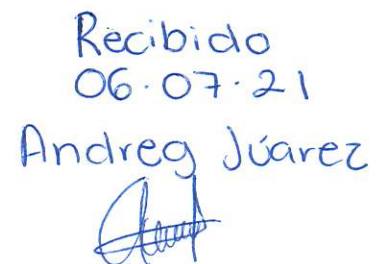 Recibido
06.07.21
Andreg Júarez